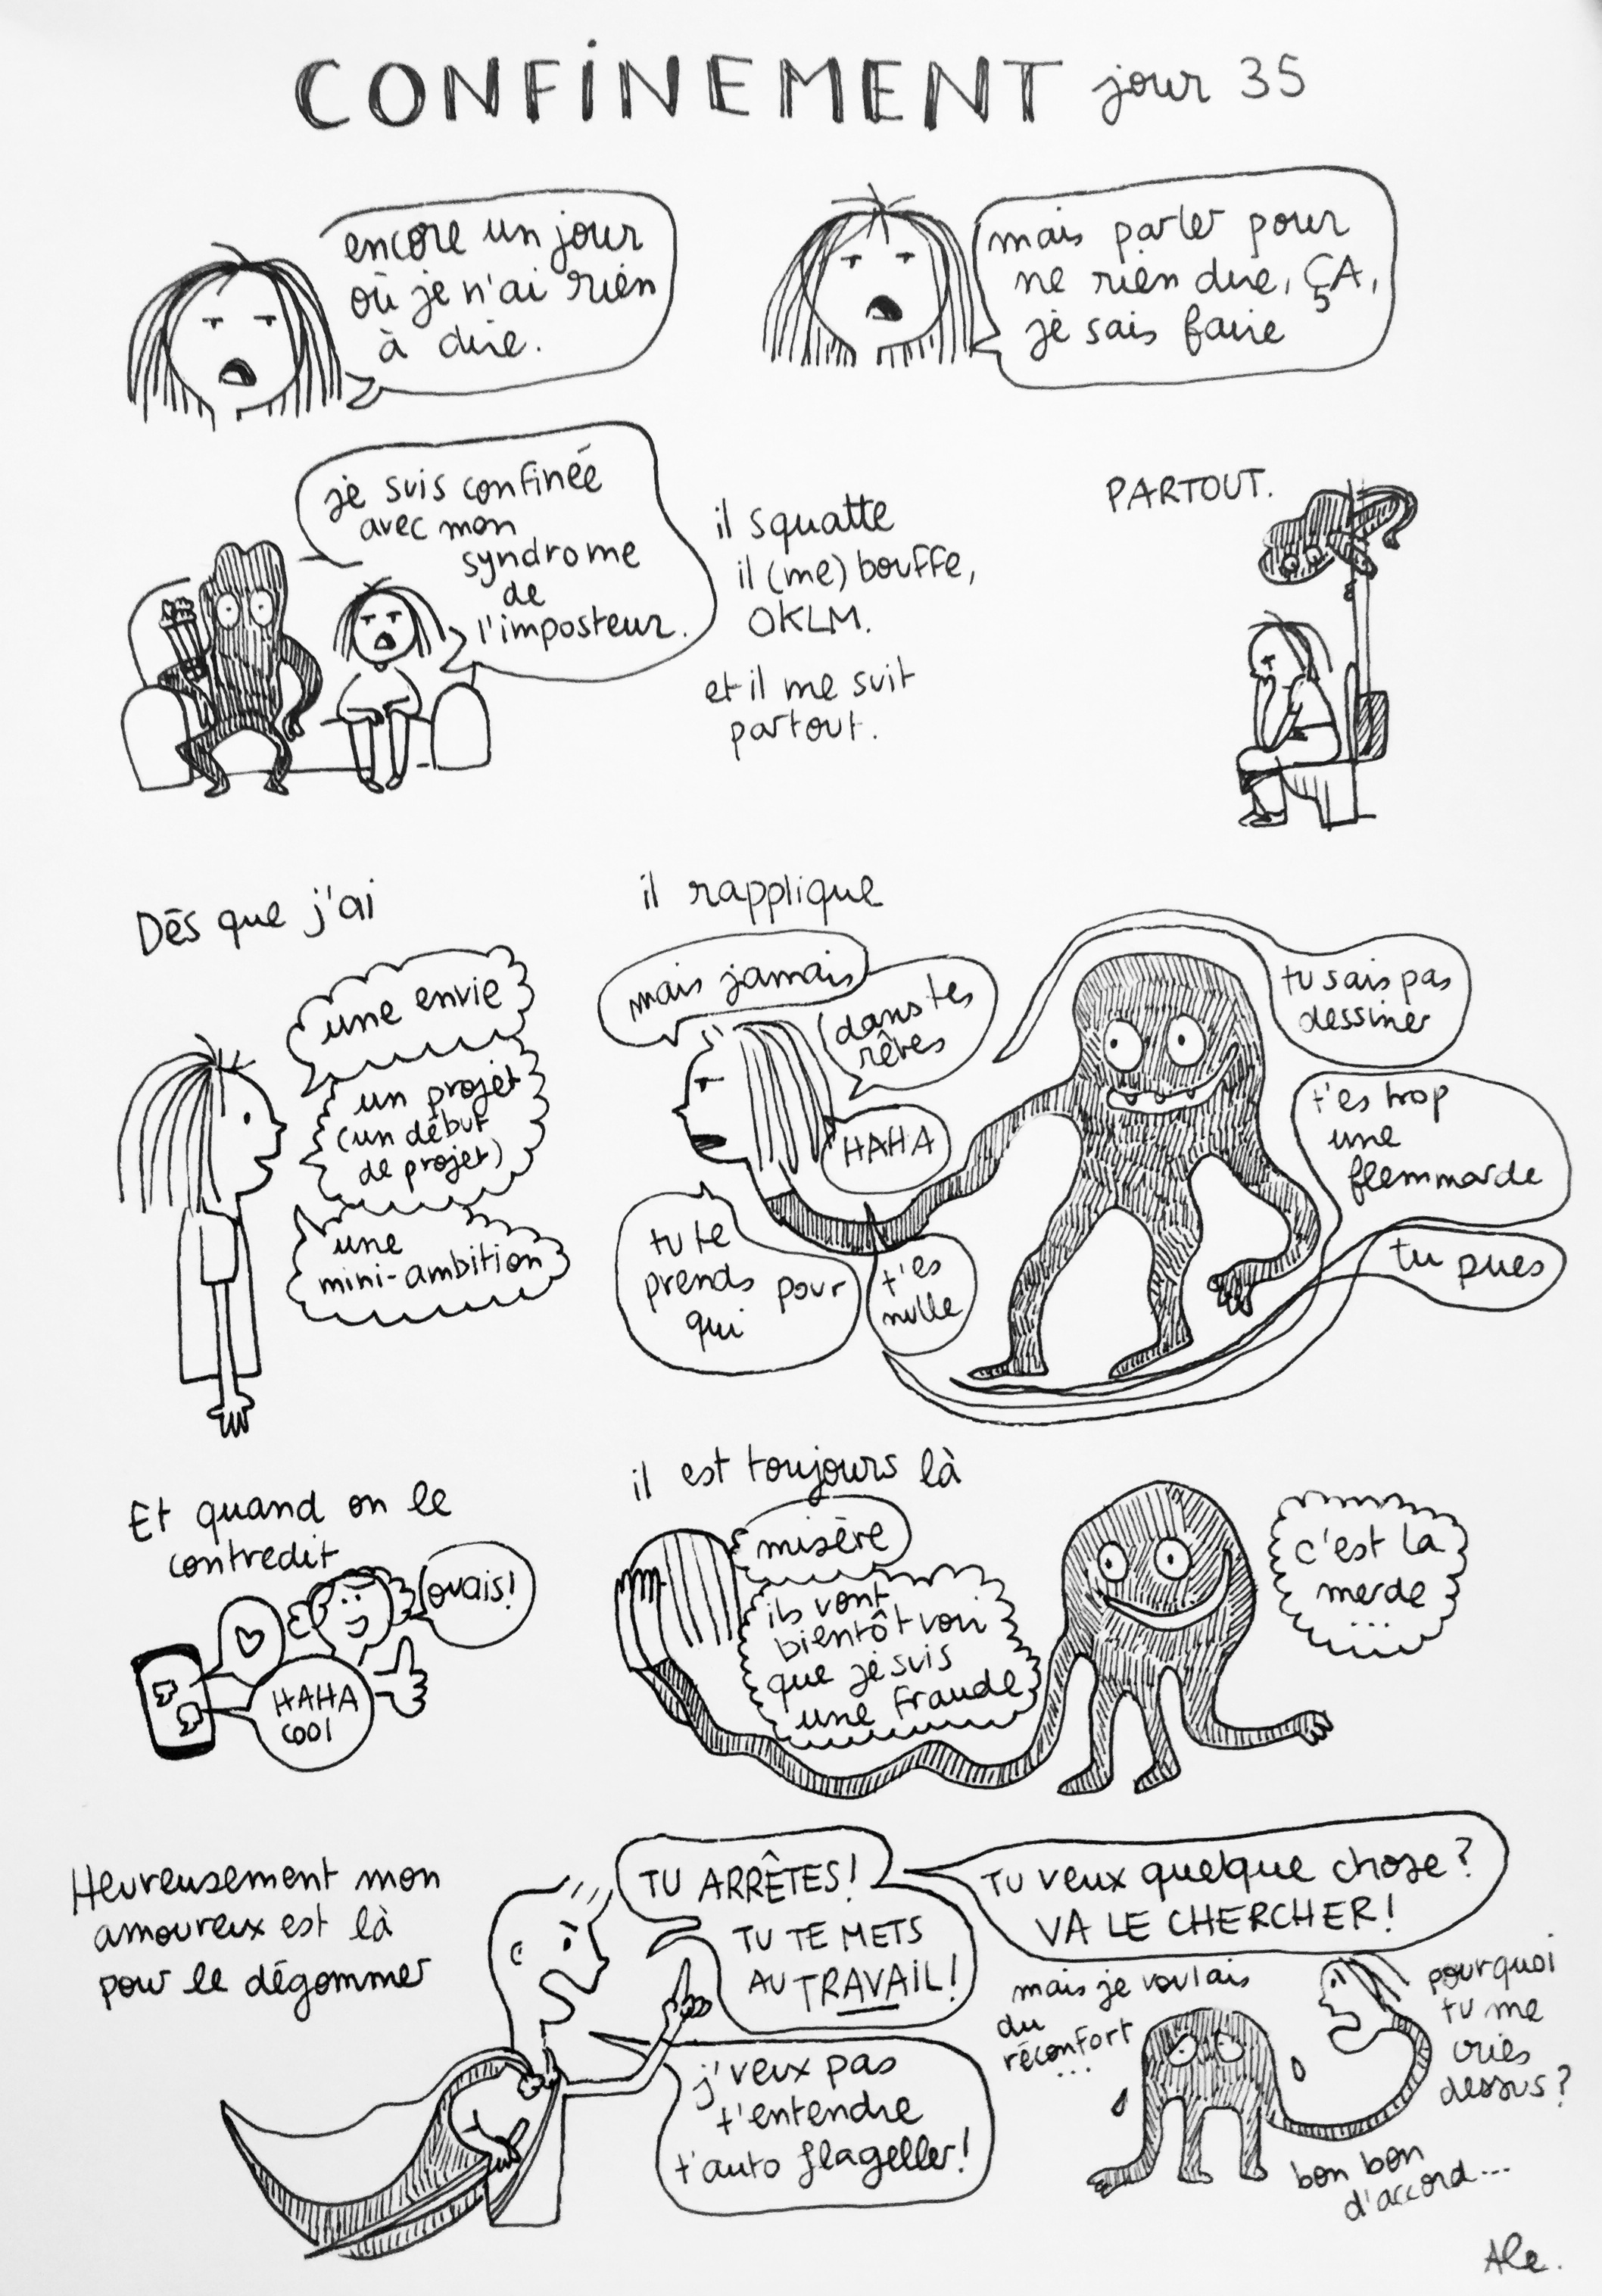 CONFINEMENT jour 35
encore un jour
où je n'ai rien
à dire.
mais parler pour
ne rien dire, ÇA,
je sais faire
je suis confinée
avec mon
syndrome
de
l'imposteur.
il squatte
il (me) bouffe,
OKLM.
et il me suit
partout.
PARTOUT.
Dès que j'ai
une envie
un projet
(un début
de projet)
une
mini-ambition
il rapplique
mais jamais
dans tes
rêves
HAHA
tu te
prends pour
qui
t'es
nulle
tu sais pas
dessiner
t'es trop
une
flemmarde
tu pues
Et quand on le
contredit
ouais!
HAHA
cool
il est toujours là
misère
ils vont
bientôt voir
que je suis
une fraude
c'est la
merde
...
Heureusement mon
amoureux est là
pour le dégommer
TU ARRÊTES!
TU TE METS
AU TRAVAIL!
TU veux quelque chose?
VA LE CHERCHER!
j'veux pas
t'entendre
t'auto flageller!
mais je voulais
du
réconfort
...
pourquoi
tu me
cries
dessus?
bon bon
d'accord...
Ale.